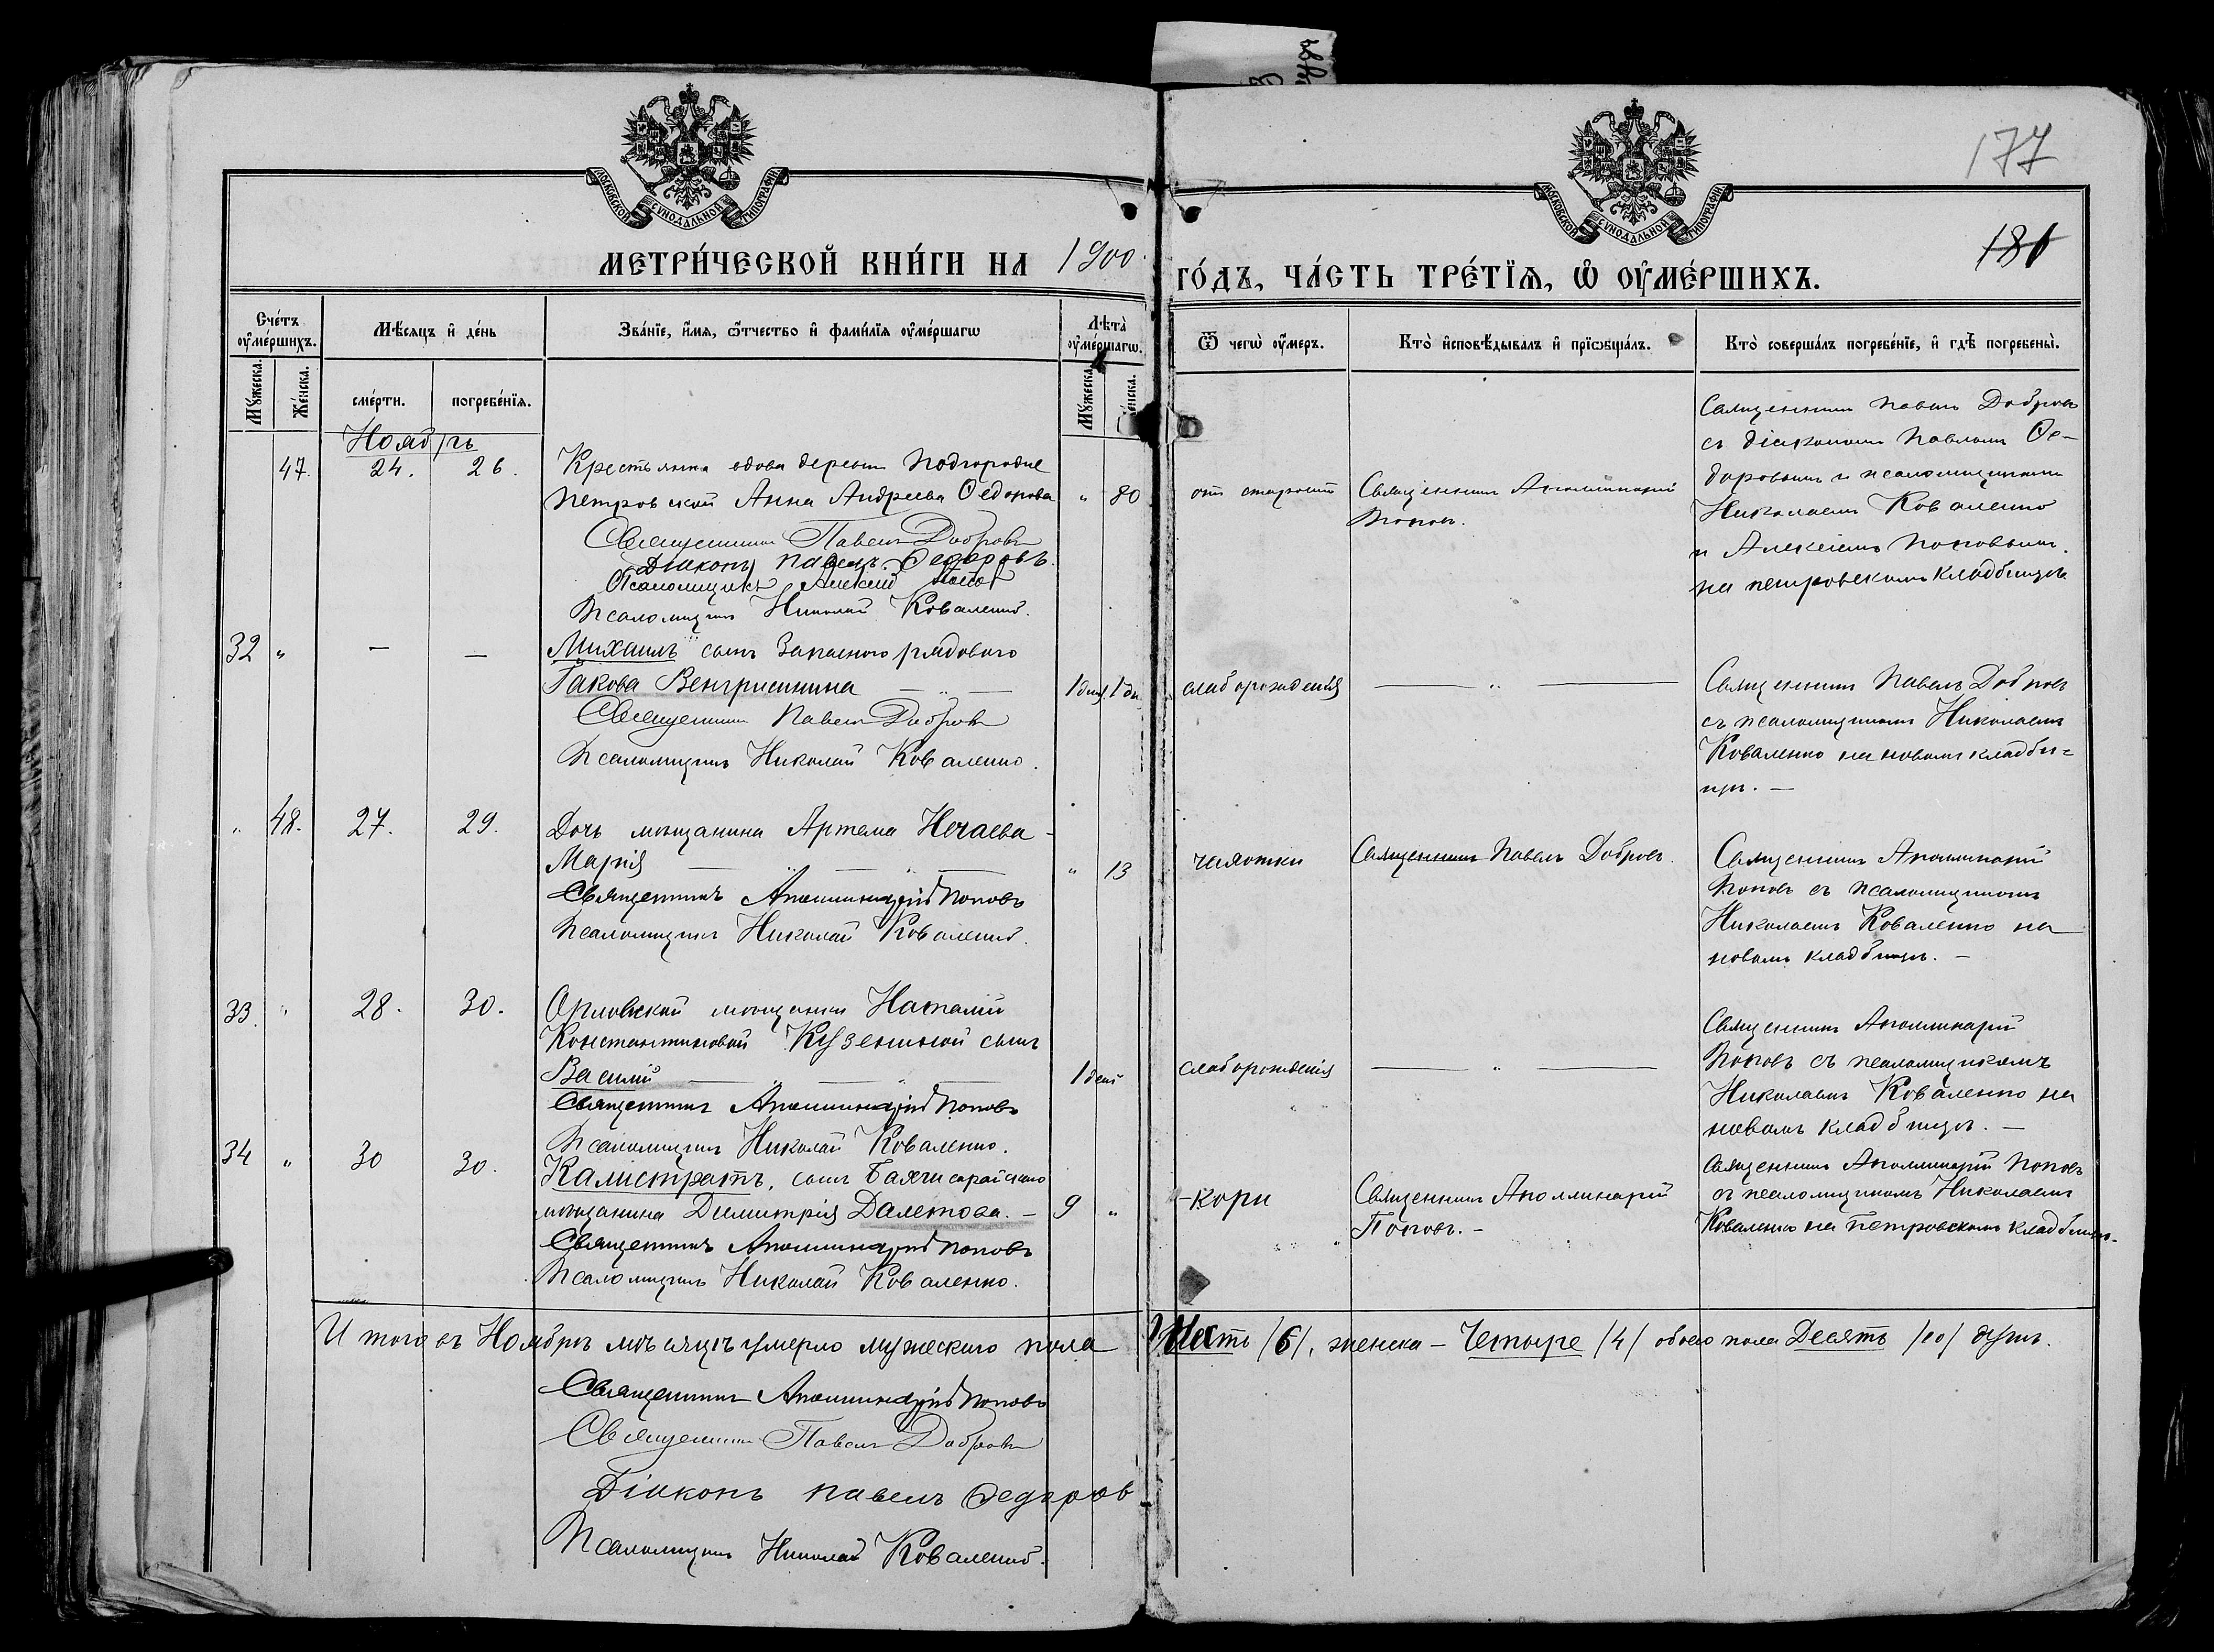 177
МОСКОВСКОЙ СѴНОДАЛЬНОЙ ТИПОГРАФІИ
МОСКОВСКОЙ СѴНОДАЛЬНОЙ ТИПОГРАФІИ
181
МЕТРИ́ЧЕСКОЙ КНИ́ГИ НА 1900 ГО́ДЪ, ЧА́СТЬ ТРЕ́ТЇѦ, Ѡ҆ ОУ҆МЕ́РШИХЪ.
Сче́тъ оу҆ме́ршихъ.
Мѣ́сяцъ и҆ де́нь
Зва́нїе, и҆́мя, ѻ҆́тчество и҆ фами́лїя оу҆ме́ршагѡ
Лѣ́та оу҆ме́ршагѡ.
Ѿ чегѡ̀ оу҆́меръ.
Кто̀ и҆сповѣ́дывалъ и҆ прїѡбща́лъ.
Кто̀ соверша́лъ погребе́нїе, и҆ гдѣ̀ погребены̀.
Мꙋ́жеска.
Же́нска.
сме́рти.
погребе́нїя.
Мꙋ́жеска.
Же́нска.
Ноябрь
47. 24. 26.
Крестьянка вдова деревни Подгородне
Петровской Анна Андреева Ѳедорова " 80
Священникъ Павелъ Добровъ
Діаконъ Павелъ Ѳедоровъ.
Псаломщикъ Алексій Попов
Псаломщикъ Николай Коваленко.
отъ старости
Священникъ Аполлинарій
Поповъ.
Священникъ Павелъ Добровъ
съ діакономъ Павломъ Ѳе-
доровымъ и псаломщиками
Николаемъ Коваленко
и Алексіемъ Поповымъ.
на петровскомъ кладбищѣ
32 " — —
Михаилъ сынъ Запаснаго рядового
Іакова Венгрисинина — " — 1 день 1 дн.
Священникъ Павелъ Добровъ
Псаломщикъ Николай Коваленко.
слаборожденія
— " —
Священникъ Павелъ Добровъ
съ псаломщикомъ Николаемъ
Коваленко на новомъ кладби=
щѣ. —
" 48. 27. 29.
Дочь мѣщанина Артема Нечаева -
Марія — " — " — " 13
Священникъ Аполлинарій Поповъ
Псаломщикъ Николай Коваленко.
чахотки
Священникъ Павелъ Добровъ.
Священникъ Аполлинарій
Поповъ съ псаломщикомъ
Николаемъ Коваленко на
новомъ кладбищѣ. —
33. " 28. 30.
Орловской мѣщанки Наталіи
Константиновой Кузениной сынъ
Василій — " — " — 1 день
Священникъ Аполлинарій Поповъ
Псаломщикъ Николай Коваленко.
слаборожденія
— " —
Священникъ Аполлинарій
Поповъ съ псаломщикомъ
Николаемъ Коваленко на
новомъ кладбищѣ. —
34 " 30 30.
Калистратъ, сынъ Бахчисарайскаго
мѣщанина Димитрія Далетова. — 9 "
Священникъ Аполлинарій Поповъ
Псаломщикъ Николай Коваленко.
-кори
Священникъ Аполлинарій
Поповъ. -
Священникъ Аполлинарій Поповъ
съ псаломщикомъ Николаемъ
Коваленко на Петровскомъ кладбищѣ.
Итого въ Ноябрѣ мѣсяцѣ умерло мужескаго пола Шесть /6/, женска — Четыре /4/ обоего пола Десять /10/ душъ.
Священникъ Аполлинарій Поповъ
Священникъ Павелъ Добровъ
Діаконъ Павелъ Ѳедоров
Псаломщикъ Николай Коваленко.